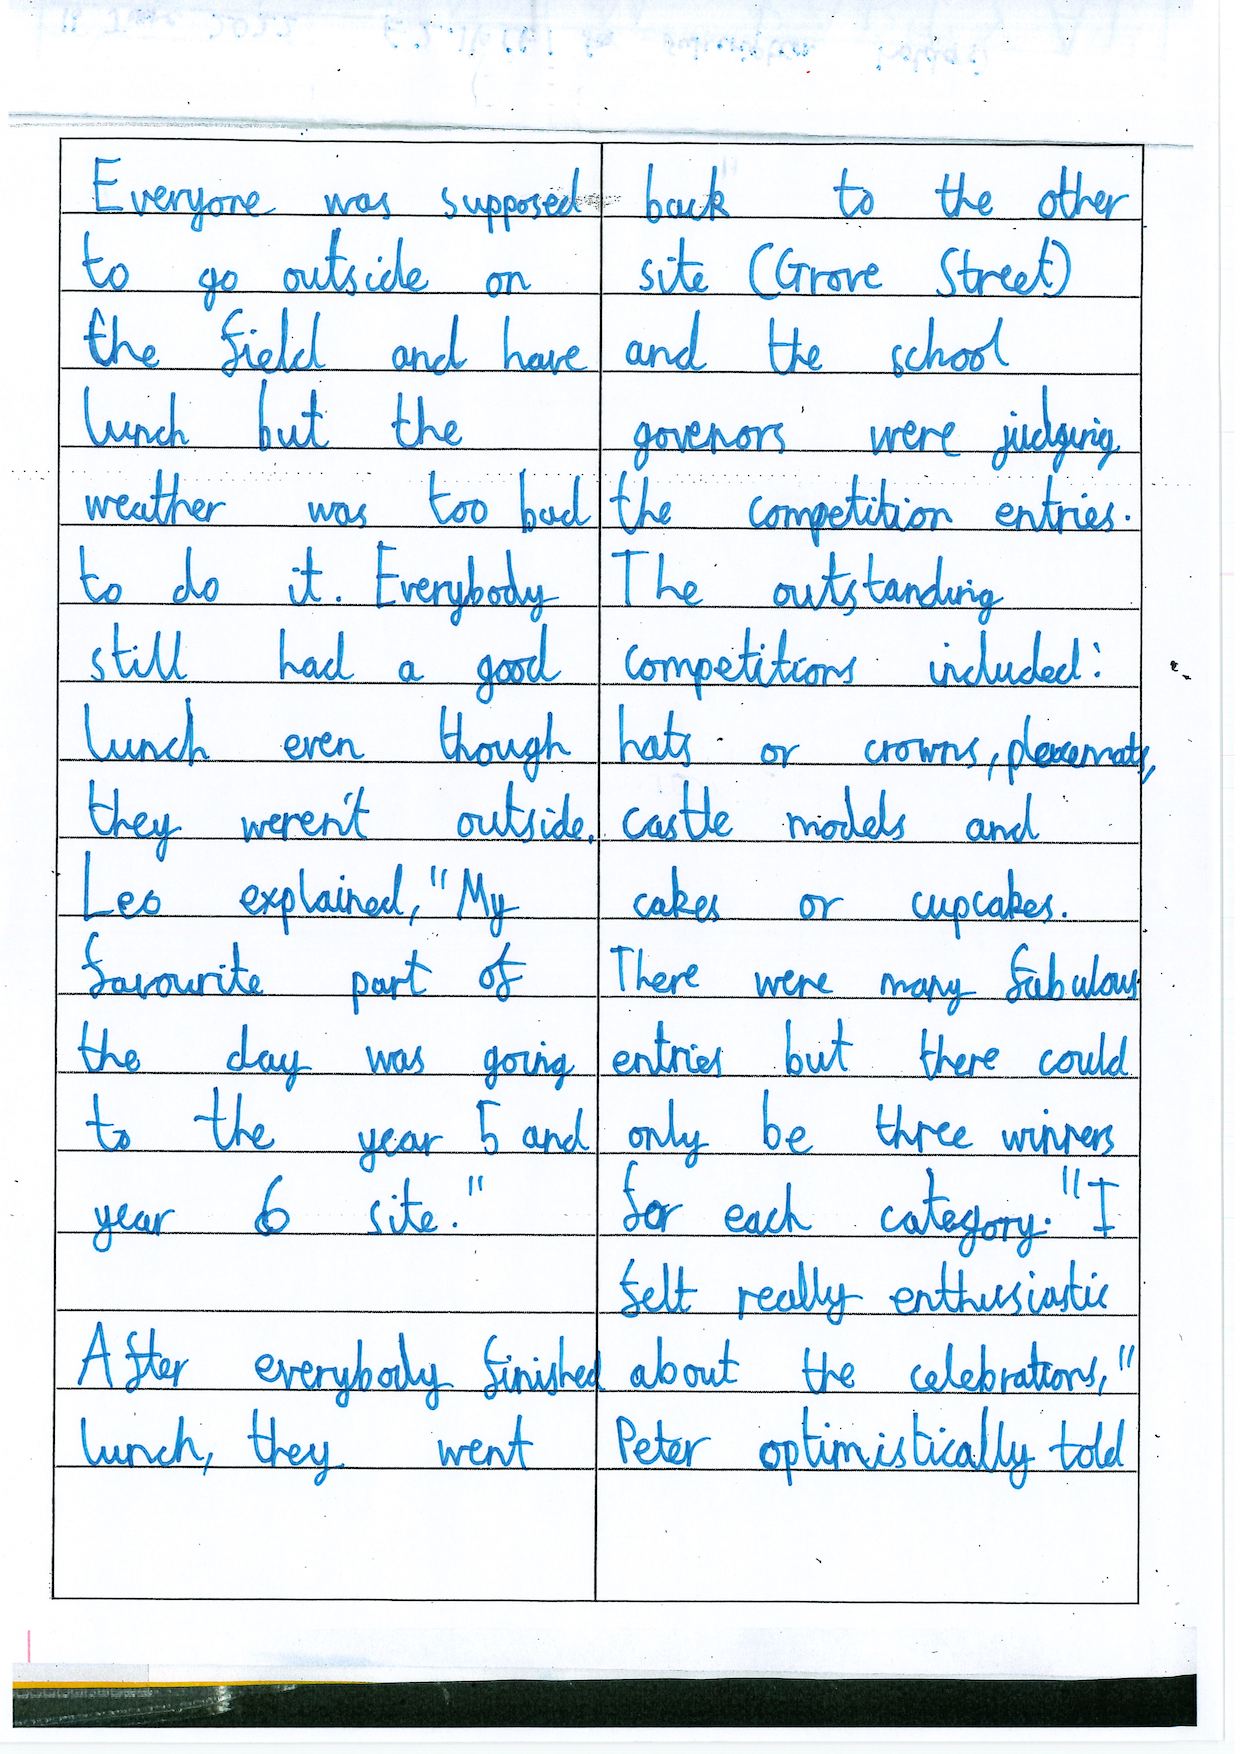 Everyone was supposed
to go outside on
the field and have
lunch but the
weather was too bad
to do it. Everybody
still had a good
lunch even though
they weren't outside.
Leo explained, "My
favourite part of
the day was going
to the year 5 and
year 6 site."
After everybody finished
lunch, they went
back to the other
site (Grove Street)
and the school
govenors were judging
the competition entries.
The outstanding
competitions included:
hats or crowns, placemats,
castle models and
cakes or cupcakes.
There were many fabulous
entries but there could
only be three winners
for each category. "I
felt really enthusiastic
about the celebrations,"
Peter optimistically told